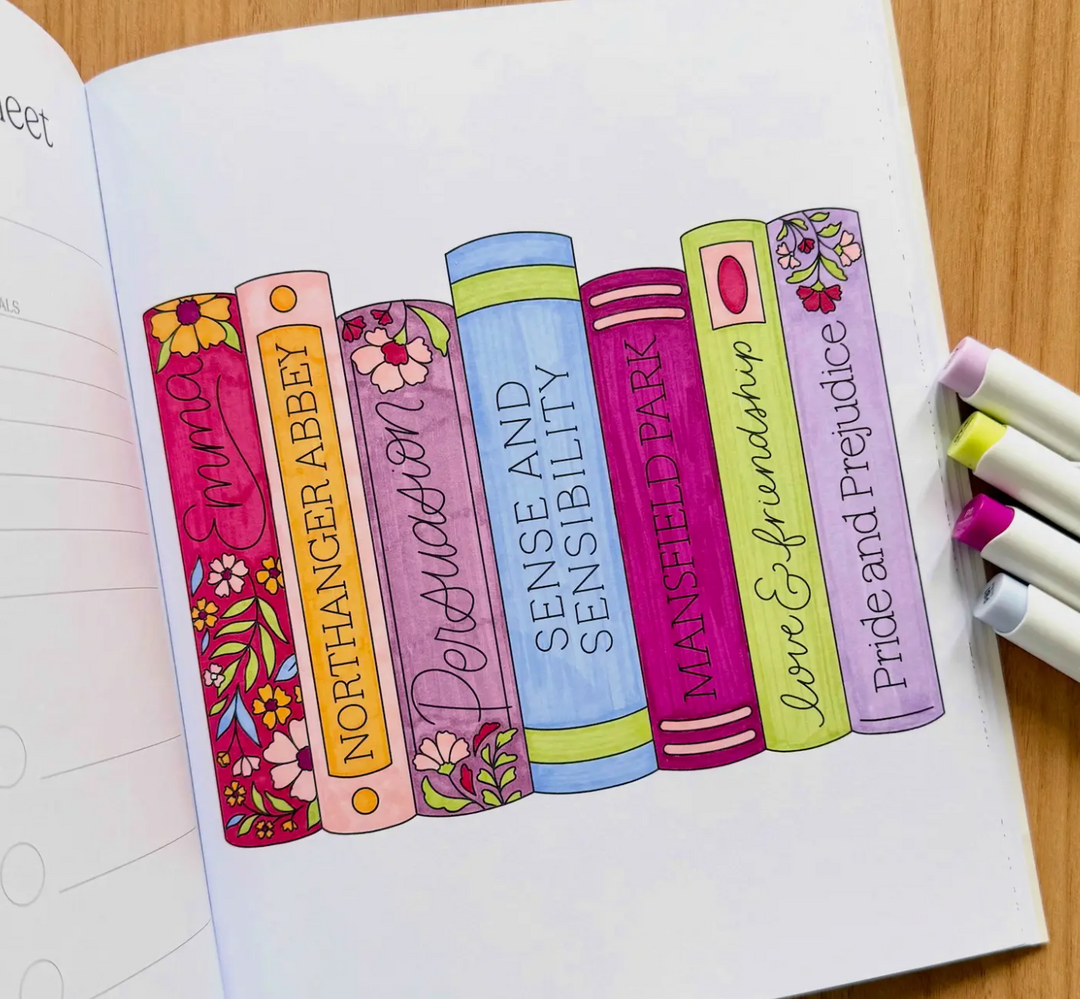 ALS
Emma
NORTHANGER ABBEY
Persuasion
SENSE AND
SENSIBILITY
MANSFIELD PARK
love & friendship
Pride and Prejudice